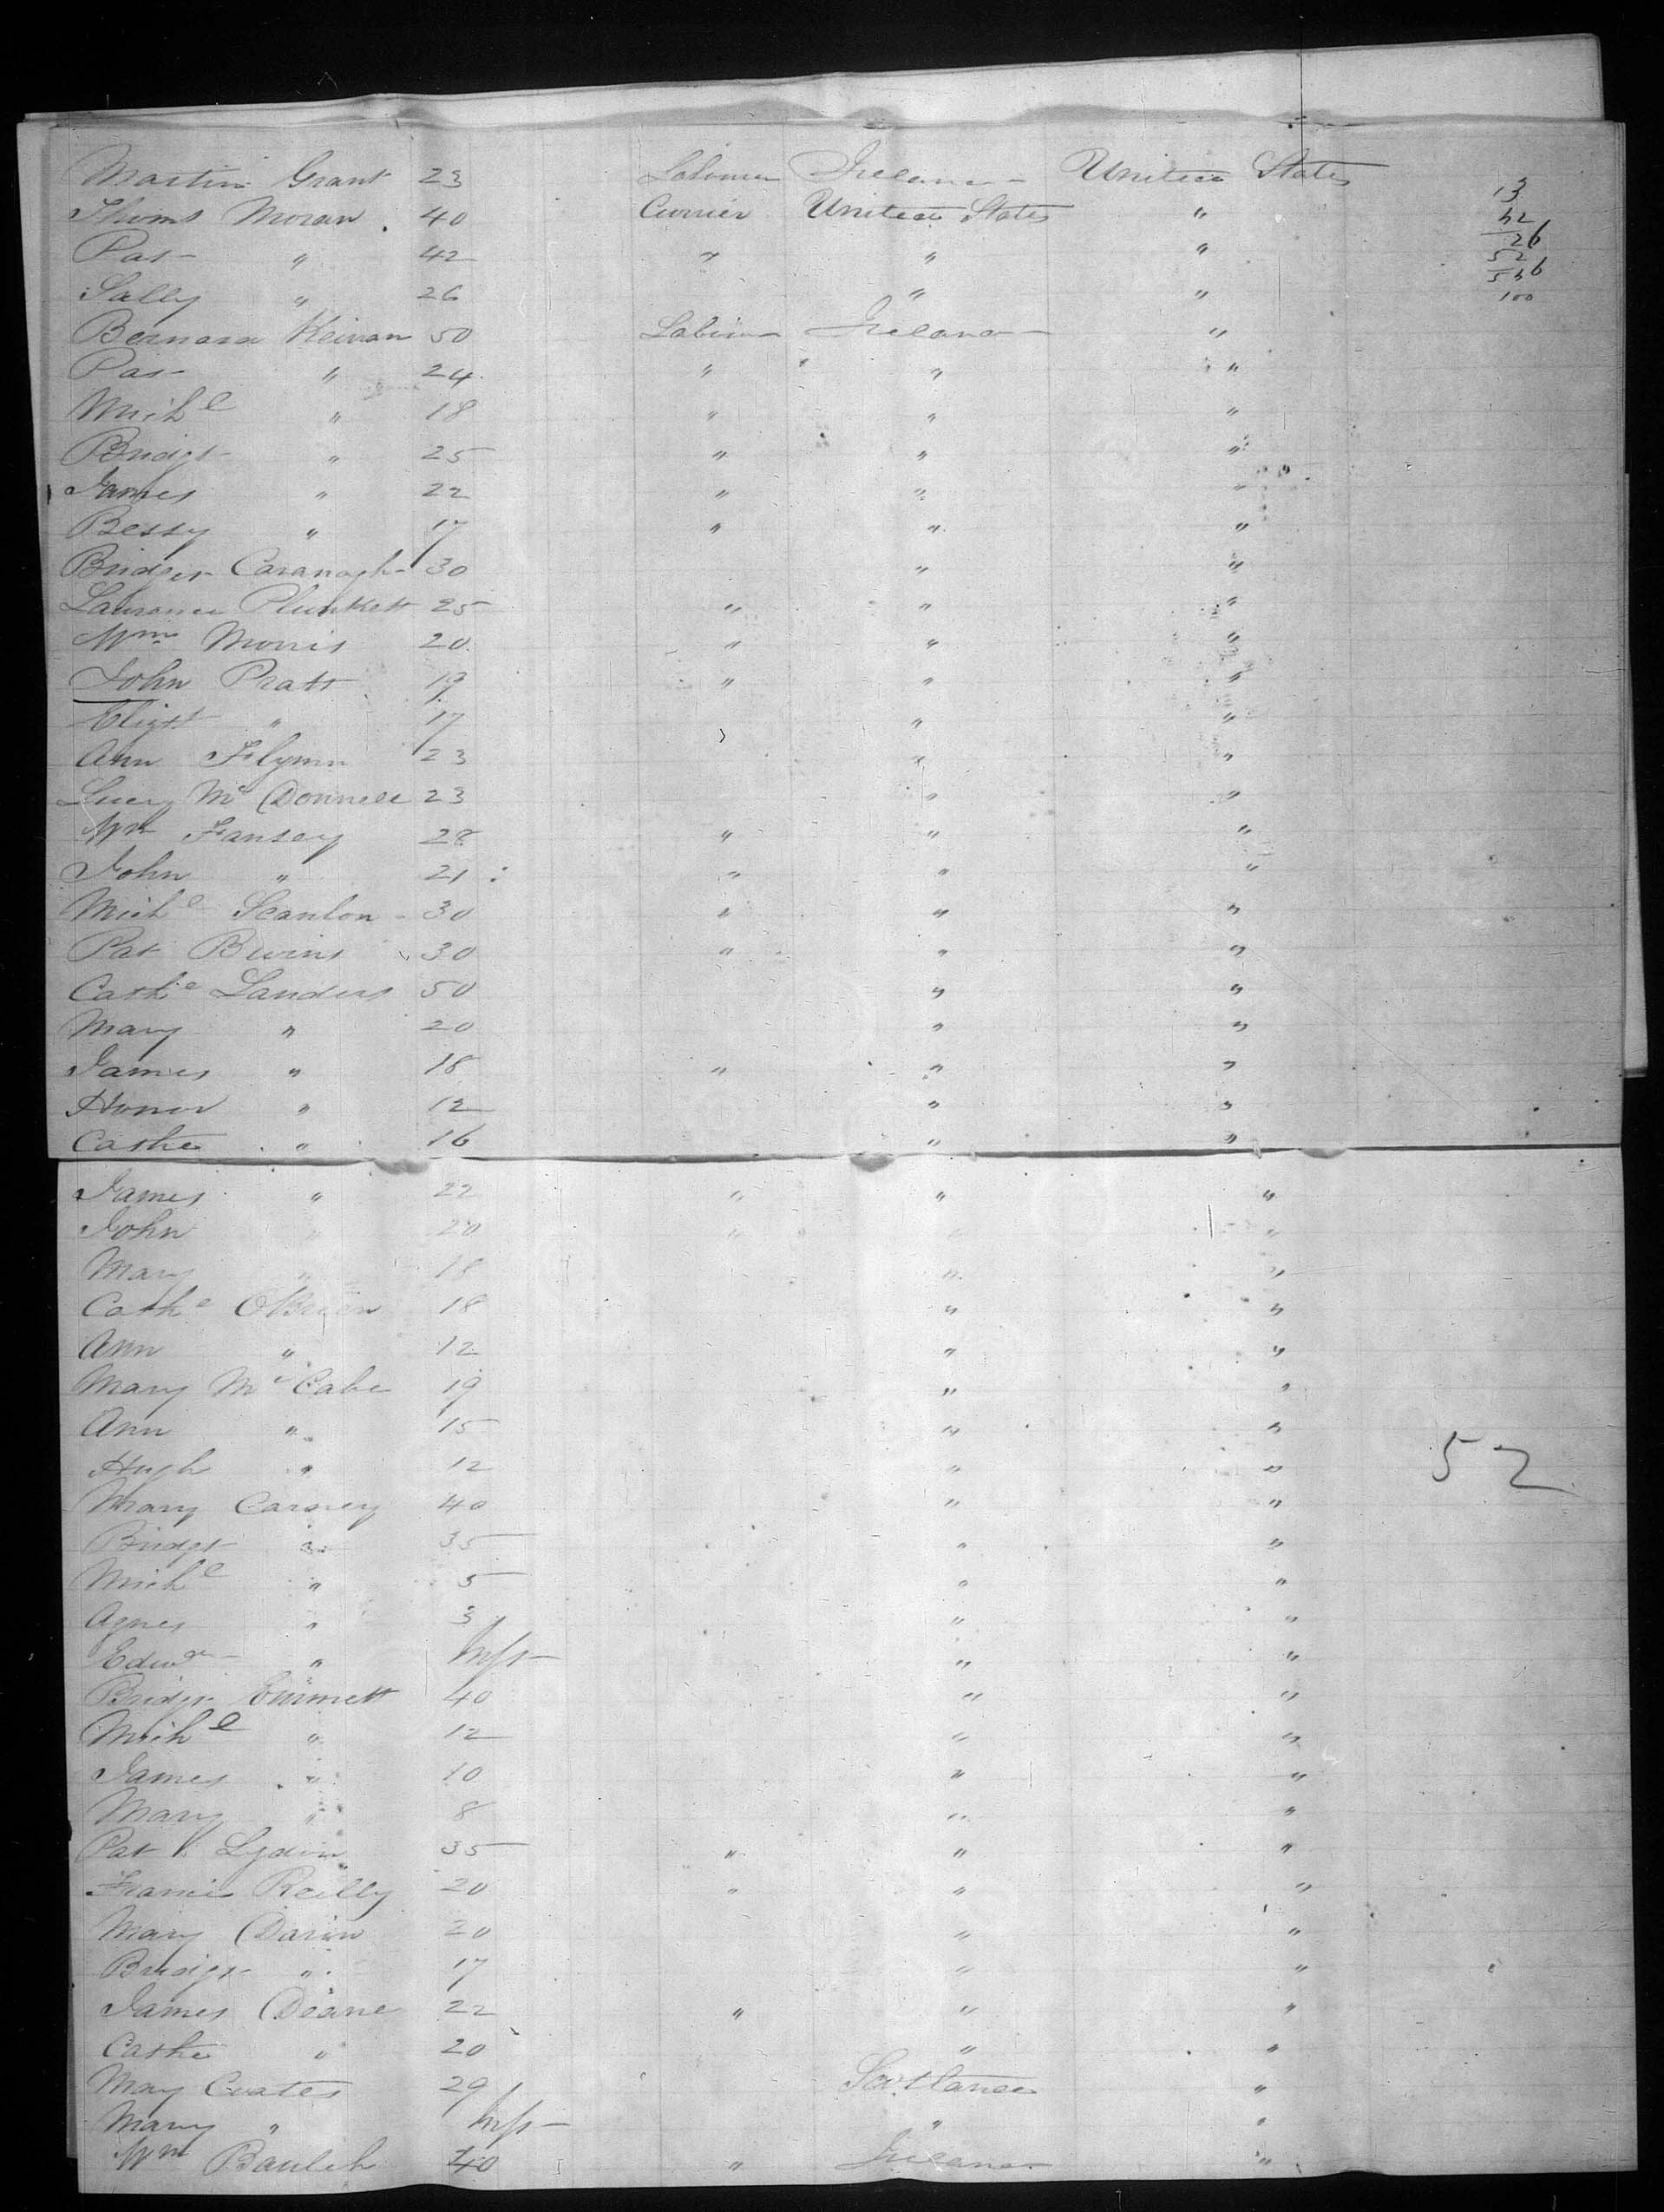 Martin Grant 23 Labourer Ireland United States
Thoms Moran 40 Currier United States "
Pat " 42 " " "
Sally " 26 " "
Bernard Keivan 50 Labourer Ireland "
Pat " 24 " " "
Michl " 18 " " "
Bridgt " 25 " " "
James " 22 " " "
Bessy " 17 " " "
Bridget Cavanagh 30 " "
Laurence Plunkett 25 " " "
Wm Morris 20 " " "
John Pratt 19 " " "
Elizt " 17 " "
Ann Flynn 23 " "
Lucy Mc Donnell 23 " "
Wm Fansey 28 " " "
John " 21 " " "
Michl Scanlon 30 " " "
Pat 30 " " "
Cathe Landers 50 " "
Mary " 20 " "
James " 18 " " "
Honor " 12 " "
Cathe " 16 " "
James " 22 " " "
John " 20 " " "
Mary " 18 " "
Cathe OBrien 18 " "
Ann " 12 " "
Mary Mc Cabe 19 " "
Ann " 15 " "
Hugh " 12 " "
Mary Carney 40 " "
Bridgt " 35 " "
Michl " 5 " "
Agnes " 3 " "
Edwd " Inft " "
Bridgt Emmett 40 " "
Michl " 12 " "
James " 10 " "
Mary " 8 " "
Pat Lydin 35 " " "
Francis Reilly 20 " " "
Mary Darin 20 " "
Bridgt " 17 " "
James Doane 22 " " "
Cathe " 20 " "
May Coates 29 Scotland "
Mary " Inft " "
Wm 40 " Ireland "
13
42
26
52
100
52